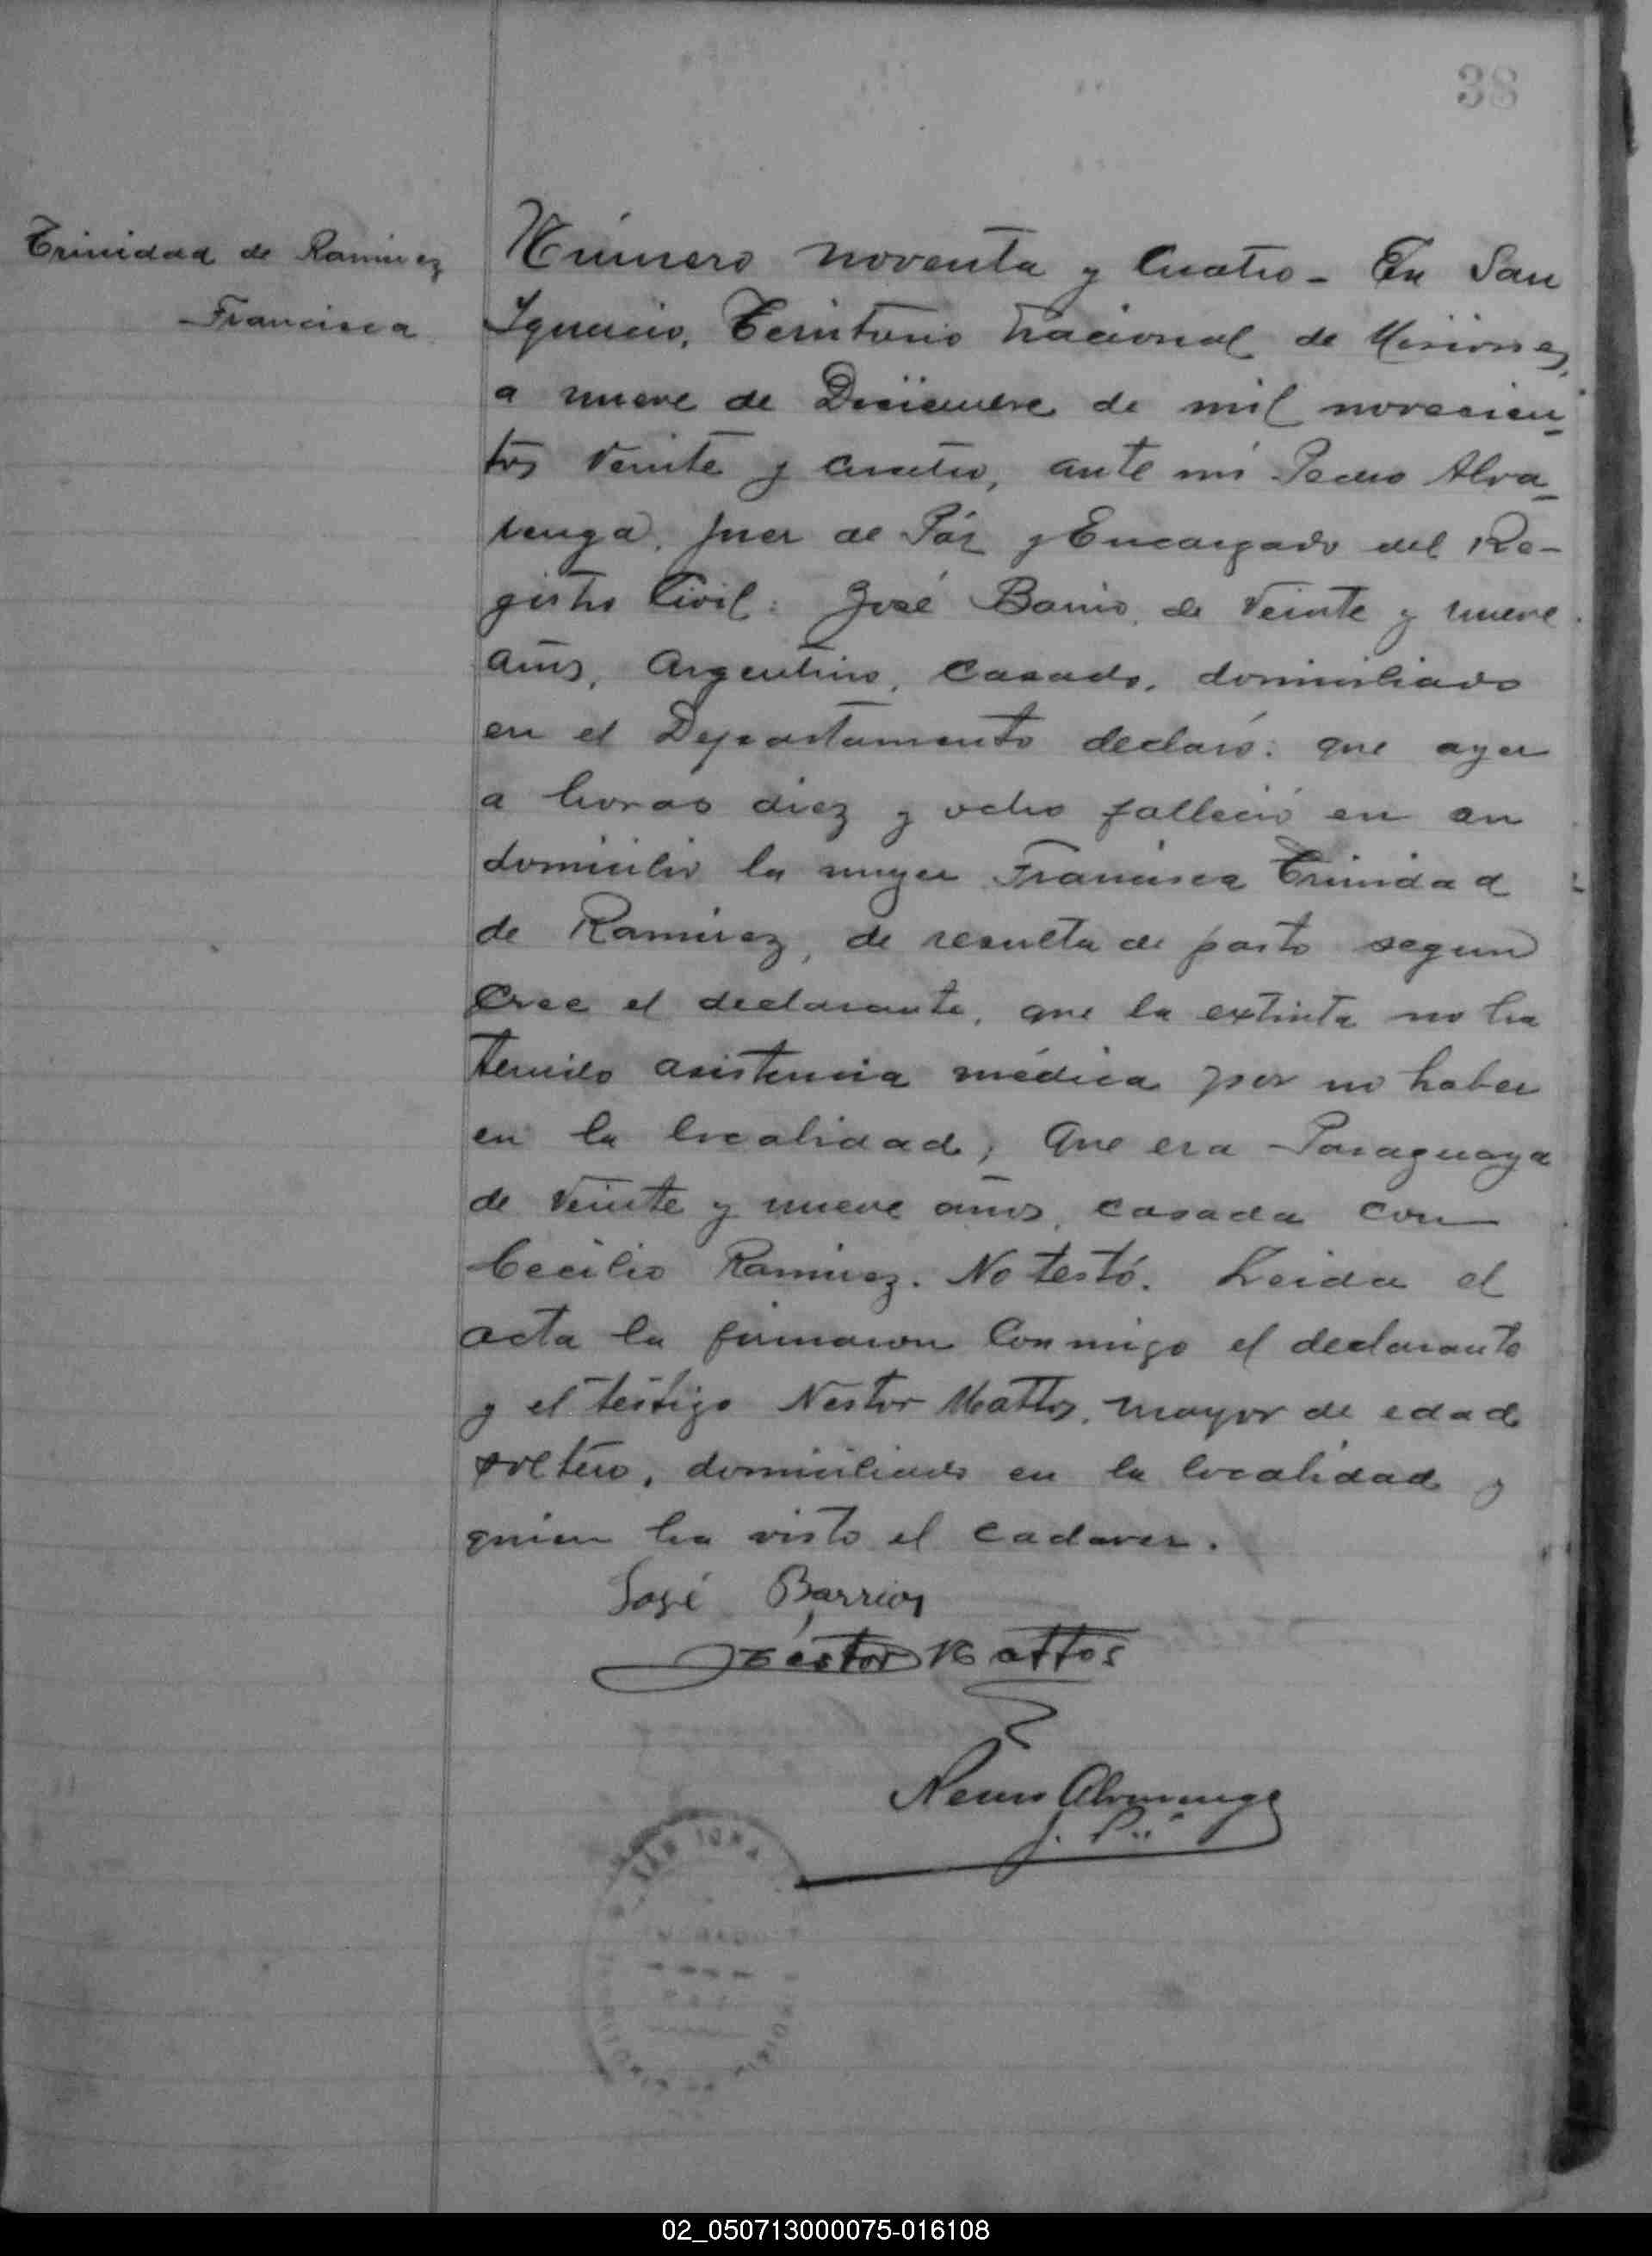 38
Trinidad de Ramirez
Francisca
Número noventa y cuatro - En San
Ignacio, Territorio Nacional de Misiones,
a nueve de Diciembre de mil novecien-
tos veinte y cuatro, ante mi Pedro Alva-
renga, Juez de Páz y Encargado del Re-
gistro Civil: José Barrio, de veinte y nueve
años, Argentino, casado, domiciliado
en el Departamento declaró: que ayer
a horas diez y ocho falleció en su
domicilio la mujer Francisca Trinidad
de Ramirez, de resulta de parto segun
cree el declarante, que la extinta no ha
tenido asistencia médica por no haber
en la localidad; Que era Paraguaya
de veinte y nueve años, casada con
Cecilio Ramirez. No testó. Leida el
acta la firmaron conmigo el declarante
y el testigo Nestor Mattos, mayor de edad
soltero, domiciliado en la localidad y
quien ha visto el cadaver.
José Barrios
Néstor Mattos
Pedro Alvarenga
J. P.
SAN IGNA
02_050713000075-016108